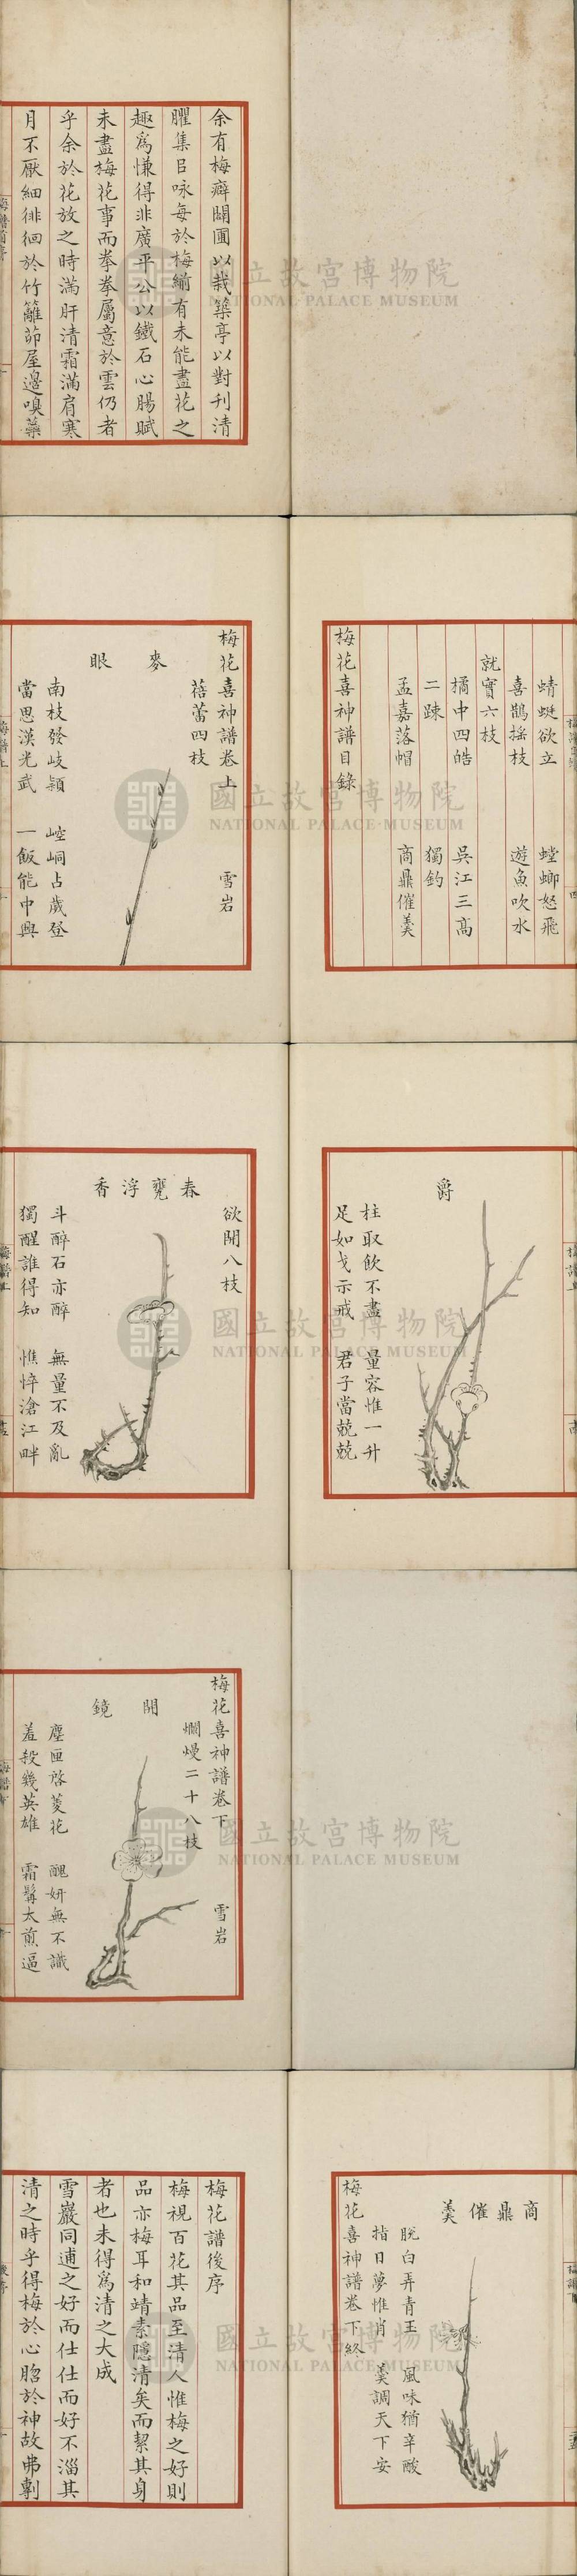 余有梅癖闢圃以栽築亭以對刋清
臞集㠯咏每於梅緰有未能盡花之
趣為慊得非廣平公以鐵石心腸賦
未盡梅花事而拳拳屬意於雲仍者
乎余於花放之時滿肝清霜滿肩寒
月不厭細徘徊於竹籬茆屋邊嗅蘂
國立故宮博物院
NATIONAL PALACE MUSEUM
蜻蜓欲立 螳螂怒飛
喜鵲搖枝 遊魚吹水
就實六枝
橘中四皓 吳江三高
二踈 獨釣
孟嘉落帽 商鼎催羹
梅花喜神譜目錄
四
梅花喜神譜卷上 雪岩
蓓蕾四枝
麥眼
南枝發岐穎 崆峒占歲登
當思漢光武 一飯能中興
國立故宮博物院
NATIONAL PALACE MUSEUM
爵
柱取飲不盡 量容惟一升
足如戈示戒 君子當兢兢
欲開八枝
春甕浮香
斗醉石亦醉 無量不及亂
獨醒誰得知 憔悴滄江畔
國立故宮博物院
NATIONAL PALACE MUSEUM
梅花喜神譜卷下 雪岩
爛熳二十八枝
開鏡
塵匣啓菱花 醜妍無不識
羞殺幾英雄 霜髯太煎逼
國立故宮博物院
NATIONAL PALACE MUSEUM
商鼎催羹
脫白弄青玉 風味猶辛酸
指日夢惟肖 羹調天下安
梅花喜神譜卷下終
梅花譜後序
梅視百花其品至清人惟梅之好則
品亦梅耳和靖素隱清矣而絜其身
者也未得為清之大成
雪巖同逋之好而仕仕而好不淄其
清之時乎得梅於心膽於神故弗剸
國立故宮博物院
NATIONAL PALACE MUSEUM